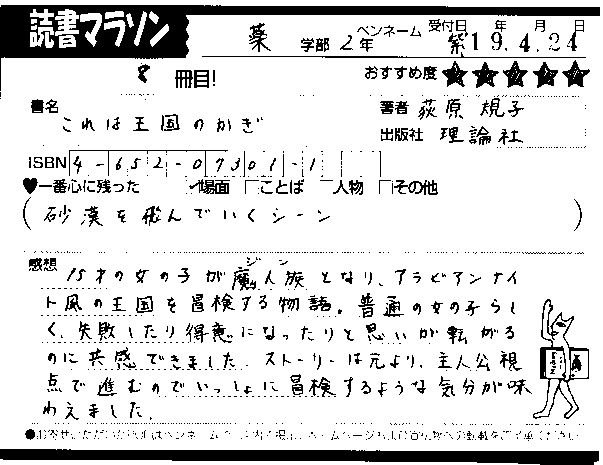 読書マラソン
薬 学部 2年 ペンネーム 紫 受付日 年 月 日 19.4.24
8 冊目! おすすめ度 ★★★★★
書名 これは王国のかぎ 著者 荻原規子
出版社 理論社
ISBN 4-652-07301-1
♥一番心に残った ✓場面 □ことば □人物 □その他
(砂漠を飛んでいくシーン)
感想 15才の女の子が魔人族(ジン)となり、アラビアンナイ
ト風の王国を冒検する物語。普通の女の子らし
く、失敗したり得意になったりと思いが転がる
のに共感できました。ストーリーは元より、主人公視
点で進むのでいっしょに冒検するような気分が味
わえました。